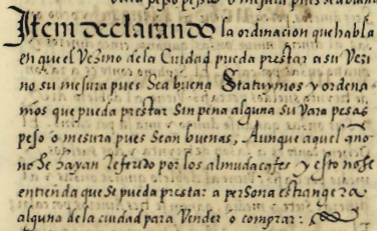 Item declarando la ordinacion que habla
en que el Vezino de la Ciudad pueda prestar a su Vezi
no su mesura pues sea buena Statuymos y ordena
mos que pueda prestar sin pena alguna su Vara pesas
peso o mesura pues sean buenas, Aunque aquel año
no se hayan refrudo por los almudacafes y esto no se
entienda que se pueda prestar a persona estrangera
alguna de la ciudad para Vender o comprar: